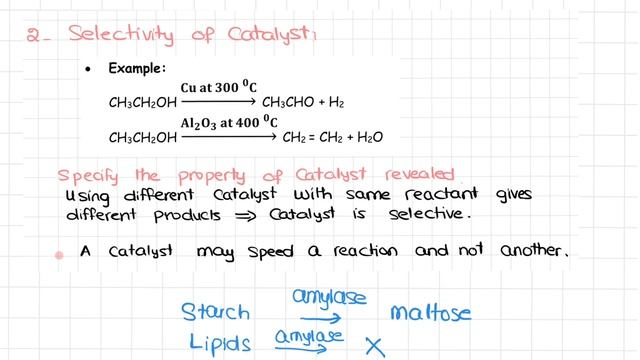 2- Selectivity of Catalyst:
• Example:
Cu at 300 ⁰C
CH₃CH₂OH ⟶ CH₃CHO + H₂
Al₂O₃ at 400 ⁰C
CH₃CH₂OH ⟶ CH₂ = CH₂ + H₂O
Specify the property of Catalyst revealed
Using different Catalyst with same reactant gives
different products ⇒ Catalyst is selective.
• A Catalyst may speed a reaction and not another.
Starch amylase ⟶ maltose
Lipids amylase ⟶ X